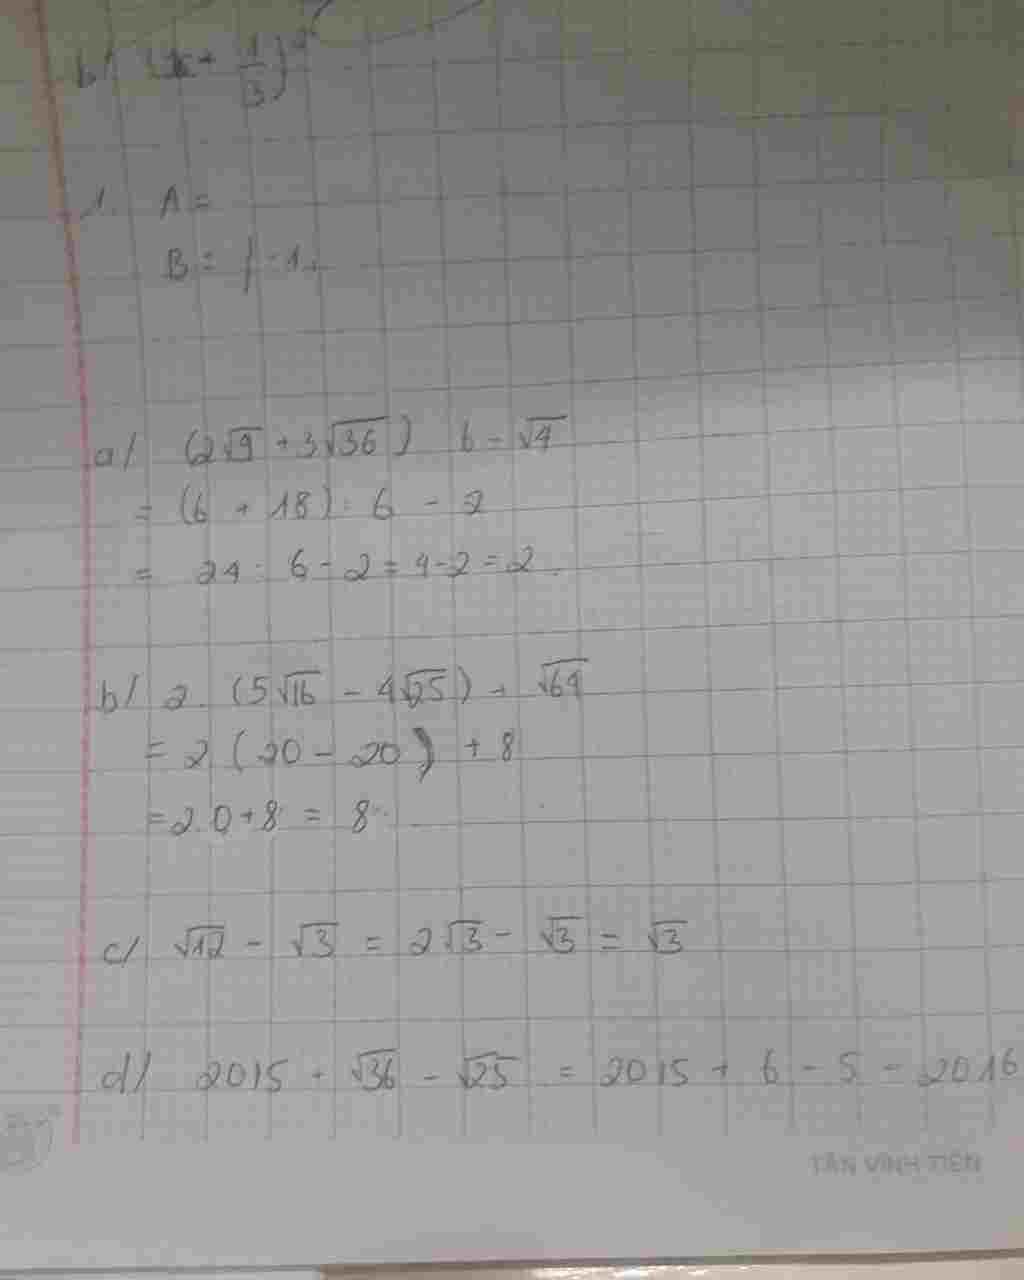 b/ (x + 1/3)
1. A =
B = | -1
a/ (2√9 + 3√36) : 6 - √4
= (6 + 18) : 6 - 2
= 24 : 6 - 2 = 4 - 2 = 2.
b/ 2. (5√16 - 4√25) + √64
= 2 (20 - 20) + 8
= 2.0 + 8 = 8
c/ √12 - √3 = 2√3 - √3 = √3
d/ 2015 + √36 - √25 = 2015 + 6 - 5 = 2016
TÂN VĨNH TIẾN